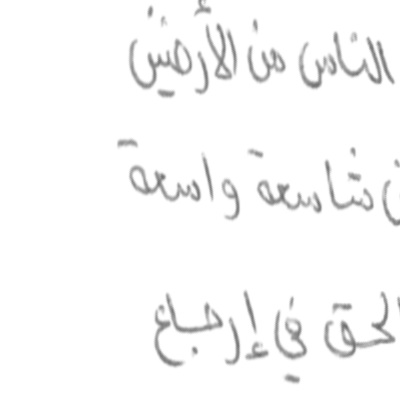 الناس من الأرضين
شاسعة واسعة
الحق في إرجاع